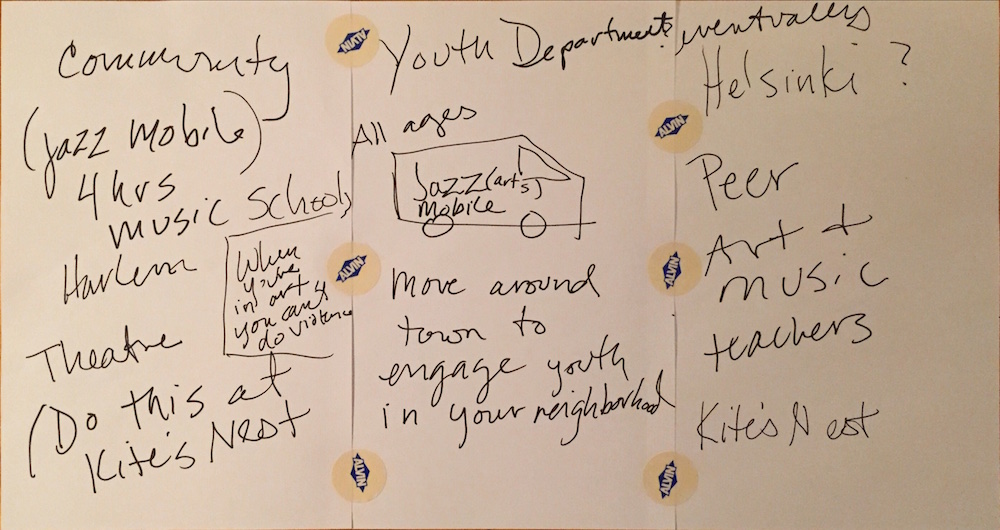 Community
(Jazz Mobile)
4 hrs
music Schools
Harlem
When
you're
in art
you can't
do violence
Theatre
(Do this at
Kite's Nest
Youth Department? eventually
All ages
Jazz (arts)
mobile
Move around
town to
engage youth
in your neighborhood
Helsinki ?
Peer
Art +
music
teachers
Kite's Nest
ALVIN
ALVIN
ALVIN
ALVIN
ALVIN
ALVIN